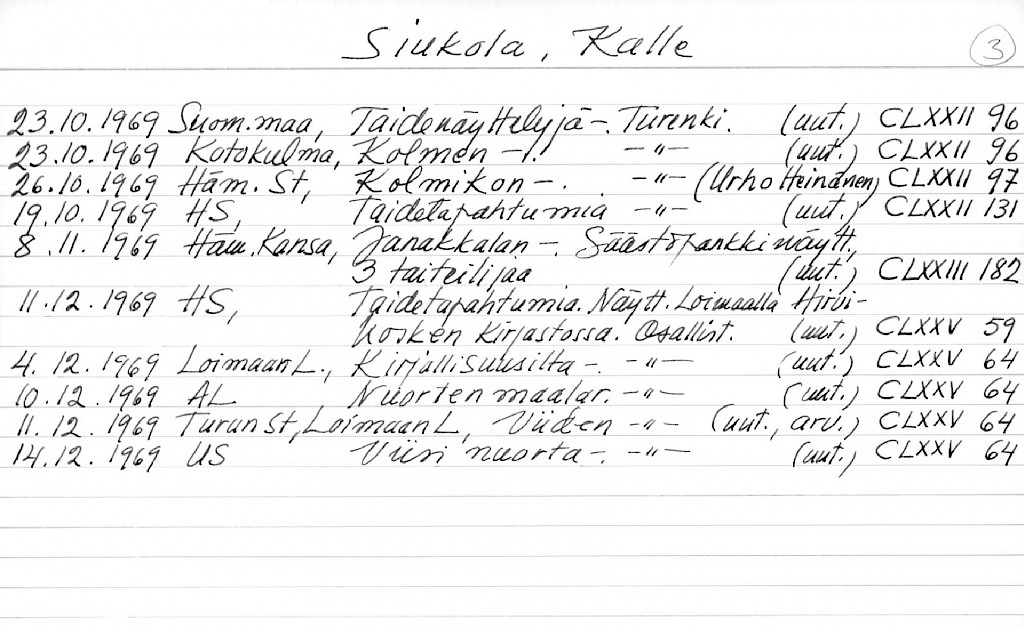 Siukola, Kalle 3
23.10.1969 Suom.maa, Taidenäyttelyjä -. Turenki. (uut.) CLXXII 96
23.10.1969 Kotokulma, Kolmen -. -"- (uut.) CLXXII 96
26.10.1969 Häm. St, Kolmikon -. -"- (Urho Heinänen) CLXXII 97
19.10.1969 HS, Taidetapahtumia -"- (uut.) CLXXII 131
8.11.1969 Häm. Kansa, Janakkalan -. Säästöpankkinäytt.,
3 taiteilijaa (uut.) CLXXIII 182
11.12.1969 HS, Taidetapahtumia. Näytt. Loimaalla Hirvi-
kosken kirjastossa. Osallist. (uut.) CLXXV 59
4.12.1969 Loimaan L., Kirjallisuusilta -. -"- (uut.) CLXXV 64
10.12.1969 AL Nuorten maalar. -"- (uut.) CLXXV 64
11.12.1969 Turun St, Loimaan L, Viiden -"- (uut., arv.) CLXXV 64
14.12.1969 US Viisi nuorta -. -"- (uut.) CLXXV 64